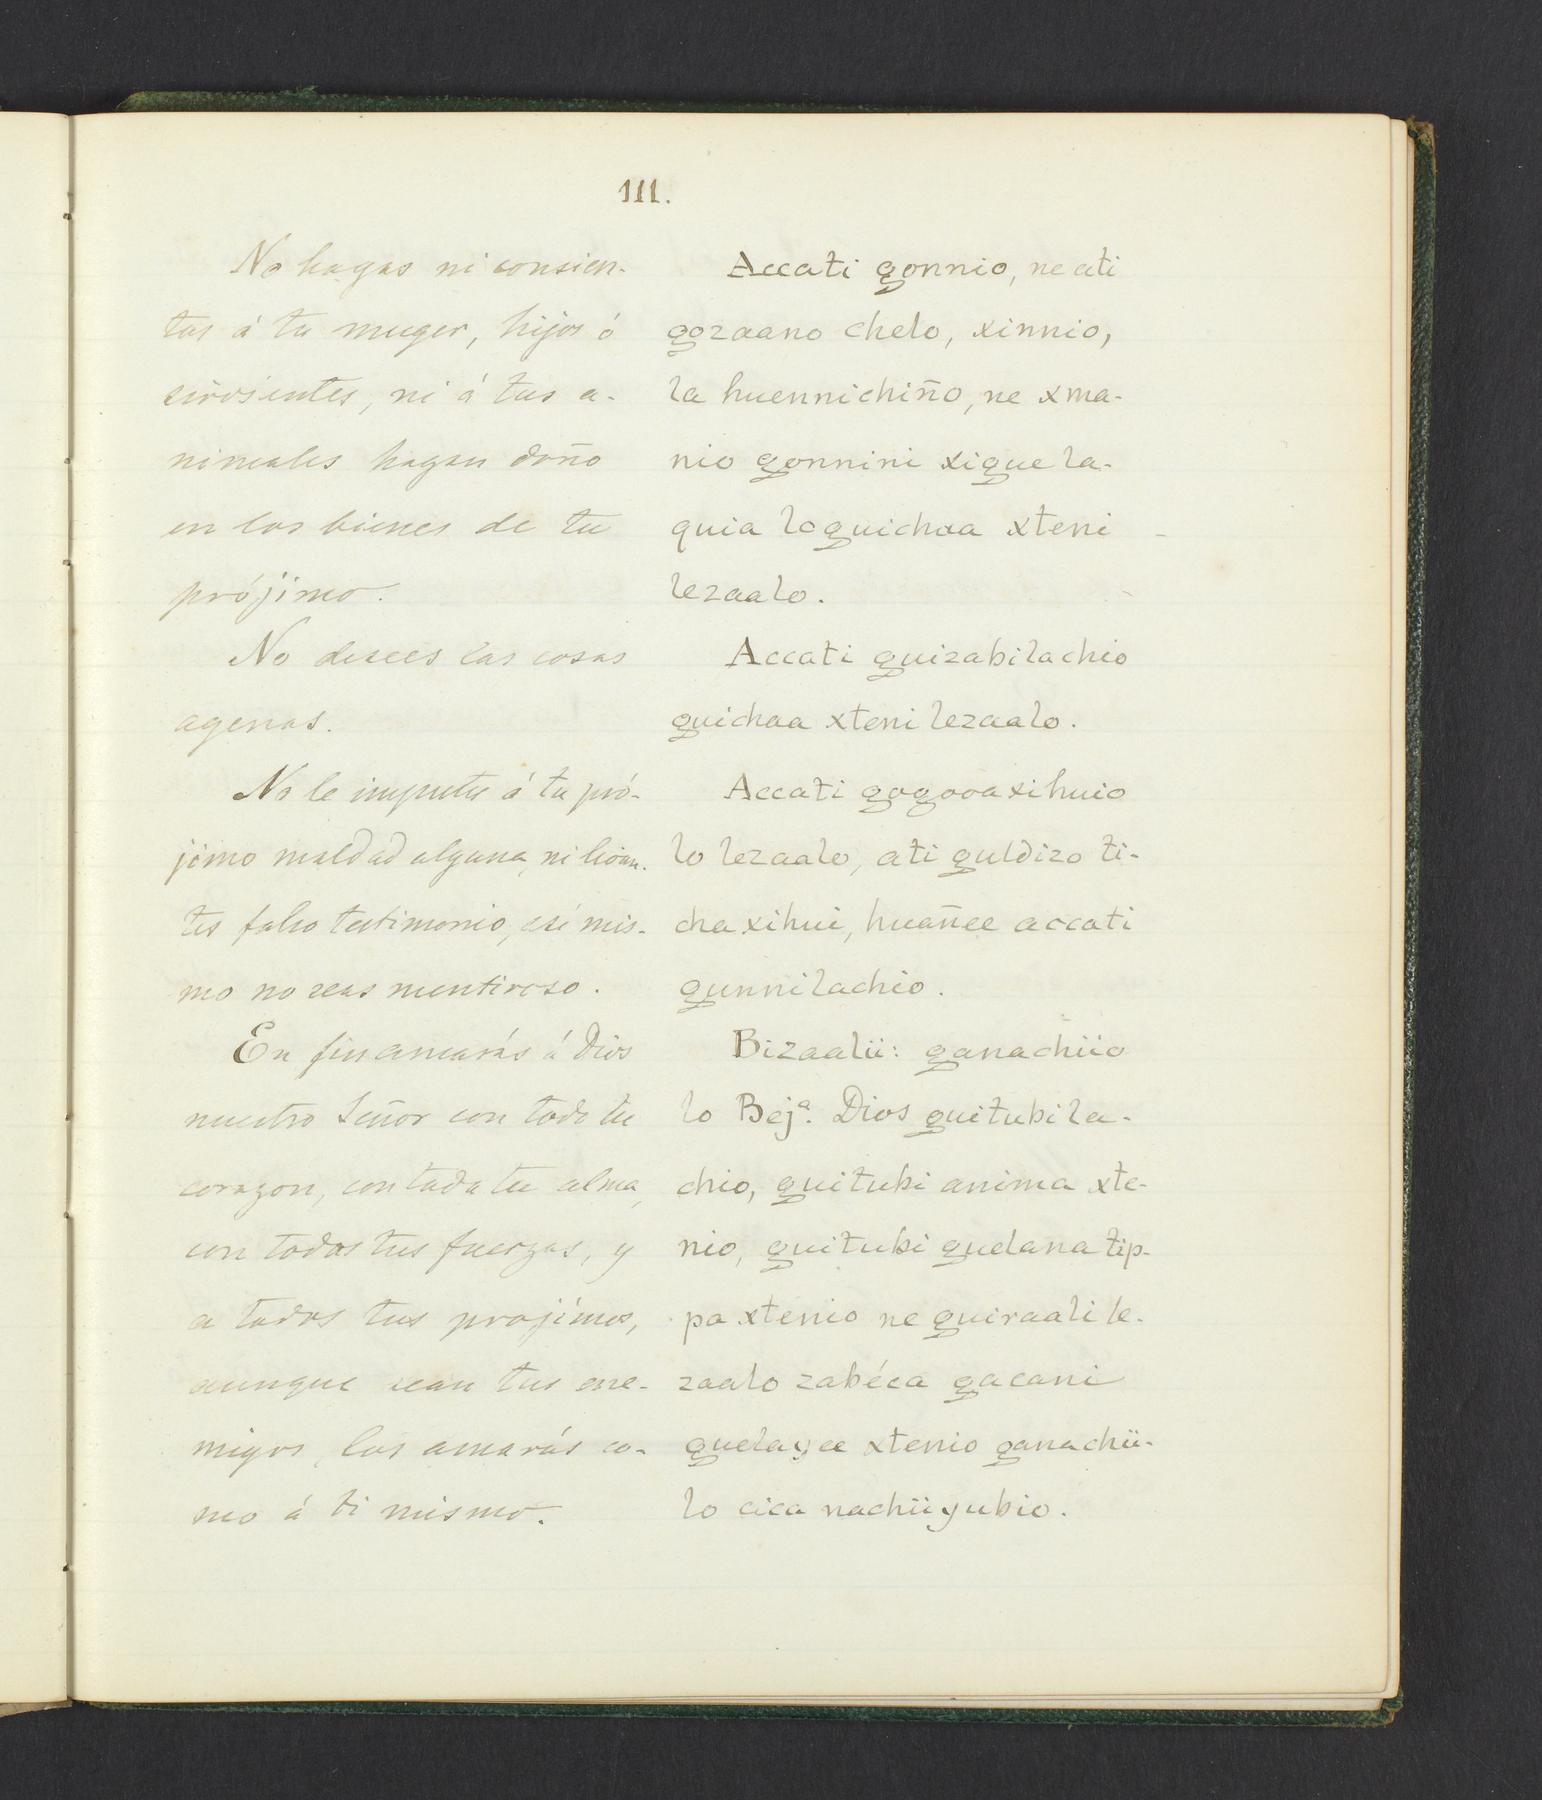 111.
No hagas ni consien-
tas á tu muger, hijos ó
sirvientes, ni á tus a-
nimales hagan daño
en los bienes de tu
prójimo.
No desees las cosas
agenas.
No le imputes á tu pró-
jimo maldad alguna, ni levan-
tes falso testimonio, asi mis-
mo no seas mentiroso.
En fin amarás á Dios
nuestro Señor con todo tu
corazon, con toda tu alma,
con todas tus fuerzas, y
a todos tus projimos,
aunque sean tus ene-
migos, los amarás co-
mo á ti mismo.
Accati gonnio, ne ati
gozaano chelo, xinnio,
la huennichiño, ne xma-
nio gonnini xiguela-
quia lo guichaa xteni
lezaalo.
Accati guizabilachio
guichaa xteni lezaalo.
Accati gogooa xihuio
lo lezaalo, ati guldizo ti-
cha xihui, huañee accati
gunnilachio.
Bizaalii: ganachiio
lo Bejª. Dios guitubi la-
chio, guitubi anima xte-
nio, guitubi guelana tip-
pa xtenio ne guiraali le-
zaalo zabéca gacani
guelayee xtenio ganachii-
lo cica nachii yubio.